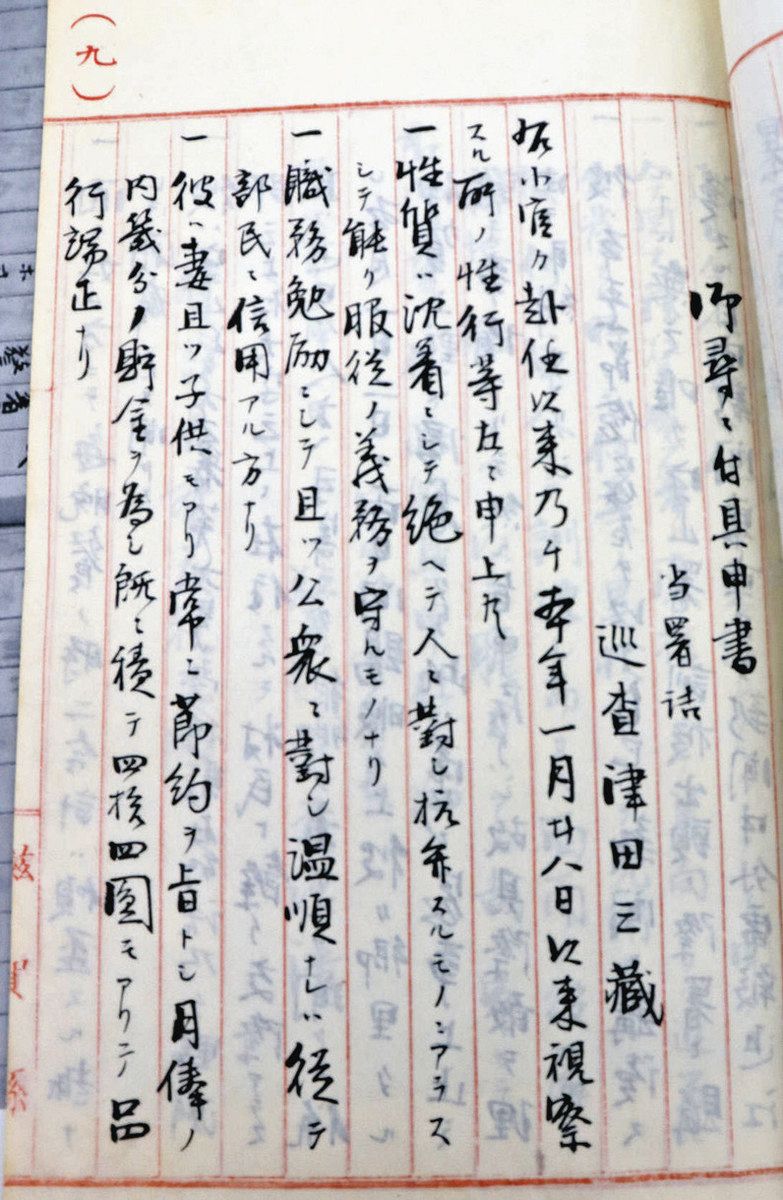 (九)
御尋ニ付具申書
当署詰
巡査津田三蔵
右小官カ赴任以来乃チ本年一月廿八日以来視察
スル所ノ性行等左ニ申上候
一性質ハ沈着ニシテ絶ヘテ人ニ對シ抗弁スルモノニアラス
シテ能ク服従ノ義務ヲ守ルモノナリ
一職務勉励ニシテ且ツ公衆ニ對シ温順ナレハ従テ
部民ニ信用アル方ナリ
一彼ハ妻且ツ子供モアリ常ニ節約ヲ旨トシ月俸ノ
内幾分ノ貯金ヲ為シ既ニ積テ四拾四圓モアリテ品
行端正ナリ
滋賀縣